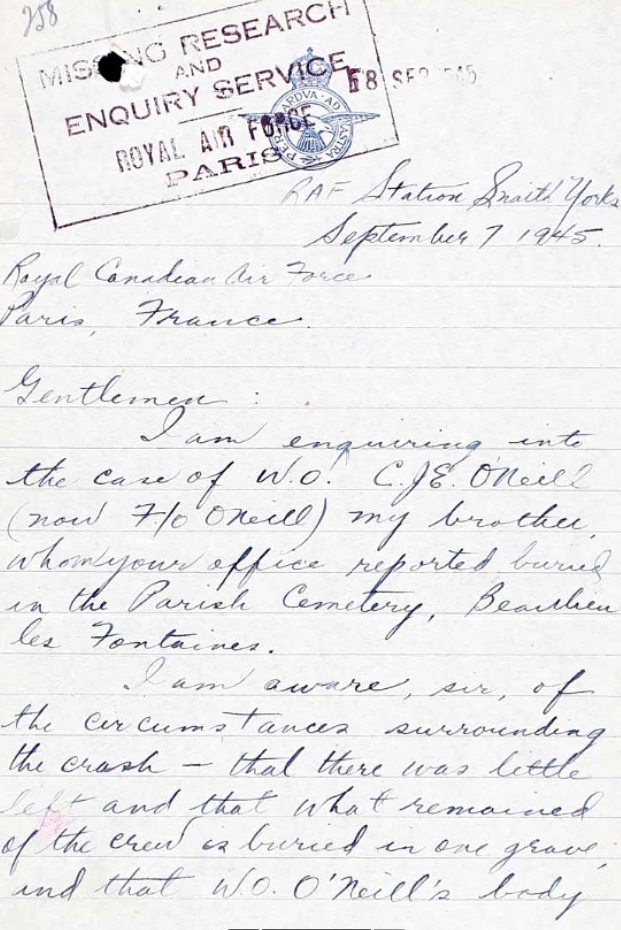 258
MISSING RESEARCH
AND
ENQUIRY SERVICE
ROYAL AIR FORCE
PARIS
18 SEP 1945
PER ARDVA AD ASTRA
RAF Station Snaith Yorks
September 7 1945.
Royal Canadian Air Force
Paris, France.
Gentlemen :
I am enquiring into
the case of W.O. C.J.E. O'Neill
(now F/O O'Neill) my brother,
whom your office reported buried
in the Parish Cemetery, Beaulieu
les Fontaines.
I am aware, sir, of
the circumstances surrounding
the crash – that there was little
left and that what remained
of the crew is buried in one grave,
and that W.O. O'Neill's body